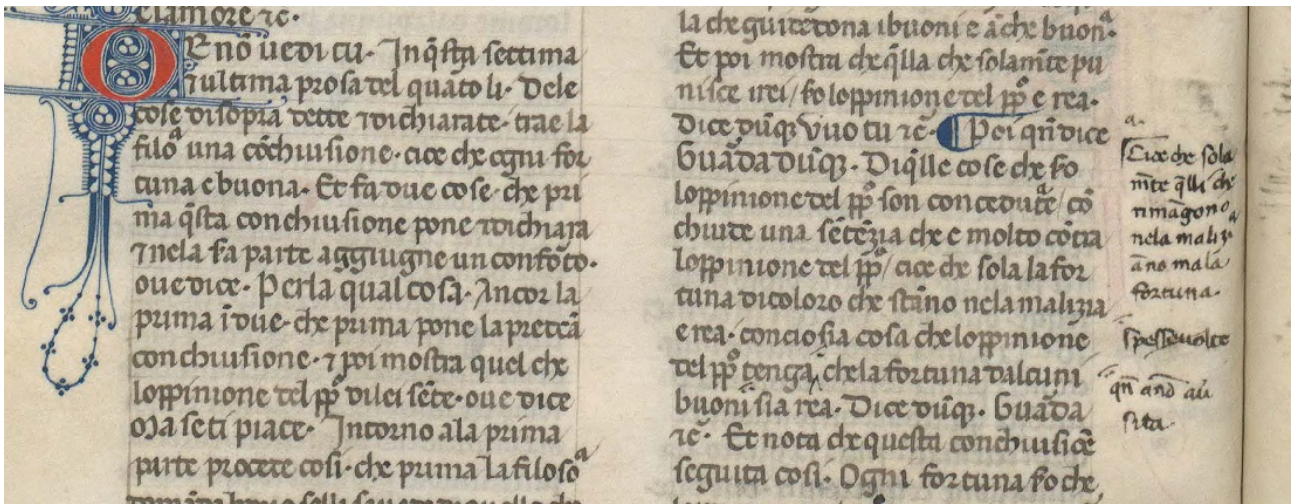 clamore ⁊c̃·
Or nõ uedi tu· In q̃sta settima
⁊ ultima prosa del quarto li· Dele
cose disopra dette ⁊ dichiarate· trae la
filoª una cõchiusione· cioe che ogni for
tuna e buona· Et fa due cose· che pri
ma q̃sta conchiusione pone ⁊ dichiara
⁊ nela fa parte aggiugne un conforto·
oue dice· Per la qual cosa· Ancor la
prima ĩ due· che prima pone la predcã
conchiusione· ⁊ poi mostra quel che
loppinione del pp̃o di lei sẽte· oue dice
Ma se ti piace· Intorno a la prima
parte procede cosi· che prima la filosoª
la che guiderdona i buoni e ãche buonª·
Et poi mostra che q̃lla che solam̃te pu
nisce irei / fo loppinione del pp̃o e rea·
Dice dũq; Vuo tu ⁊c̃· ¶ Poi qñ dice
Guarda dũq;· Di q̃lle cose che fo
loppinione del pp̃o son concedute / cõ
chiude una sẽtẽzia che e molto cõtra
loppinione del pp̃o / cioe che sola la for
tuna di coloro che stãno nela malizia
e rea· concio sia cosa che loppinione
del pp̃o tenga, che la fortuna dalcuni
buoni sia rea· Dice dũq;· Guarda
⁊c̃· Et nota che questa conchiusiõe
seguita cosi· Ogni fortuna fo che
a·
Cioe che sola
m̃te q̃lli che
rimãgono
nela maliziª
ãno mala
fortuna·
spesseuolte
qñ añd au
sita·